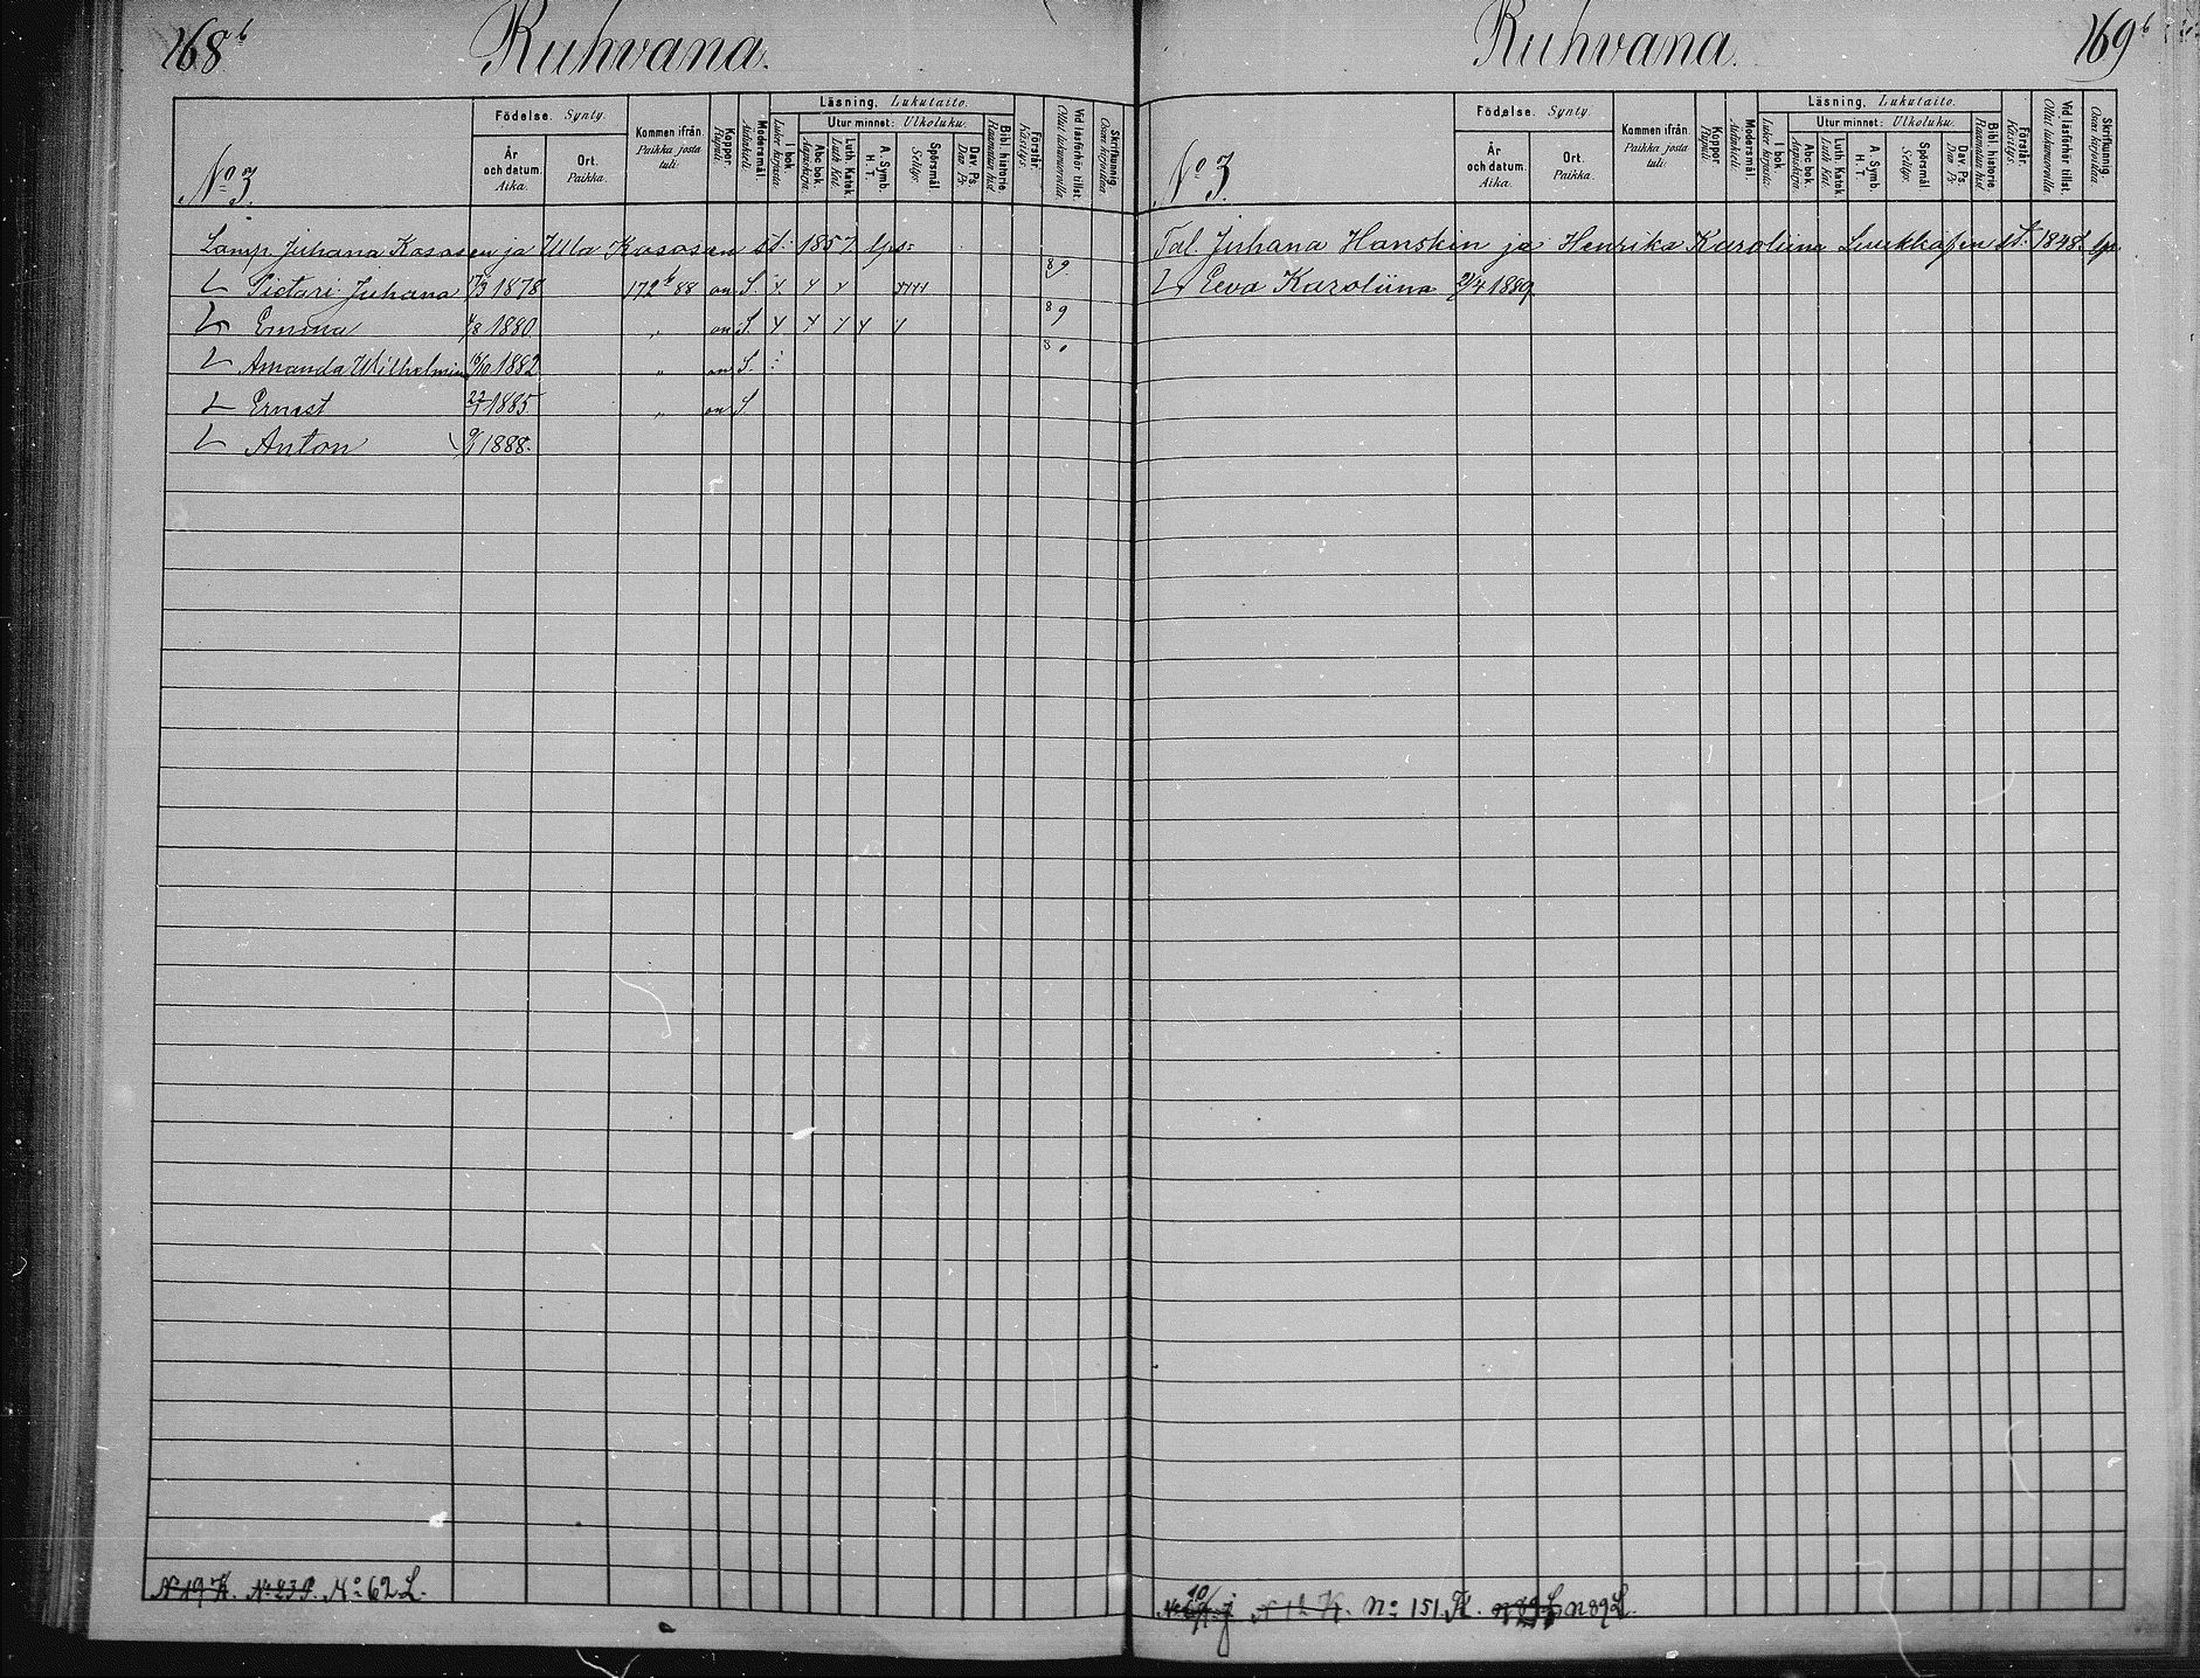 168b Ruhvana.
No 3.
Födelse. Synty.
År och datum. Aika.
Ort. Paikka.
Kommen ifrån. Paikka josta tuli:
Koppor. Rupuli.
Modersmål. Äidinkieli.
Läsning. Lukutaito.
I bok. Lukee kirjasta:
Utur minnet: Ulkoluku.
Abc bok. Aapiskirja.
Luth. Katek. Luth Kat.
A. Symb. H. T.
Spörsmål. Selitys.
Dav. Ps. Dav Ps.
Bibl. historie. Raamatun hist.
Förstår. Käsitys.
Vid läsförhör tillst. Ollut lukumorolla.
Skrifkunnig. Osaa kirjoittaa
Lamp. Juhana Kososen ja Ulla Kososen st: 1857 lps:
Pietari Juhana 1878 172b 88 on S. 89
Emma 4/8 1880 " on S. 89
Amanda Wilhelmina 1882 " on S.
Ernest 1885 " on S
Anton 1888.
N 19 K. No 23 P. No 62 L.
Ruhvana. 169b
No 3.
Födelse. Synty
År och datum. Aika.
Ort. Paikka.
Kommen ifrån. Paikka josta tuli:
Koppor Rupuli.
Modersmål. Äidinkieli.
Läsning. Lukutaito.
I bok. Lukee kirjasta:
Utur minnet: Ulkoluku.
Abc bok. Aapiskirja.
Luth. Katek. Luth Kat.
A. Symb. H. T.
Spörsmål Selitys.
Dav. Ps Dav Ps.
Bibl. historie. Raamatun hist
Förstår. Käsitys.
Vid läsförhör tillst. Ollut lukumorolla.
Skrifkunnig. Osaa kirjoittaa.
Tal. Juhana Hanskin ja Henrika Karoliina st: 1848 lps
Eeva Karoliina 1889
No 151. K. n 89 L.